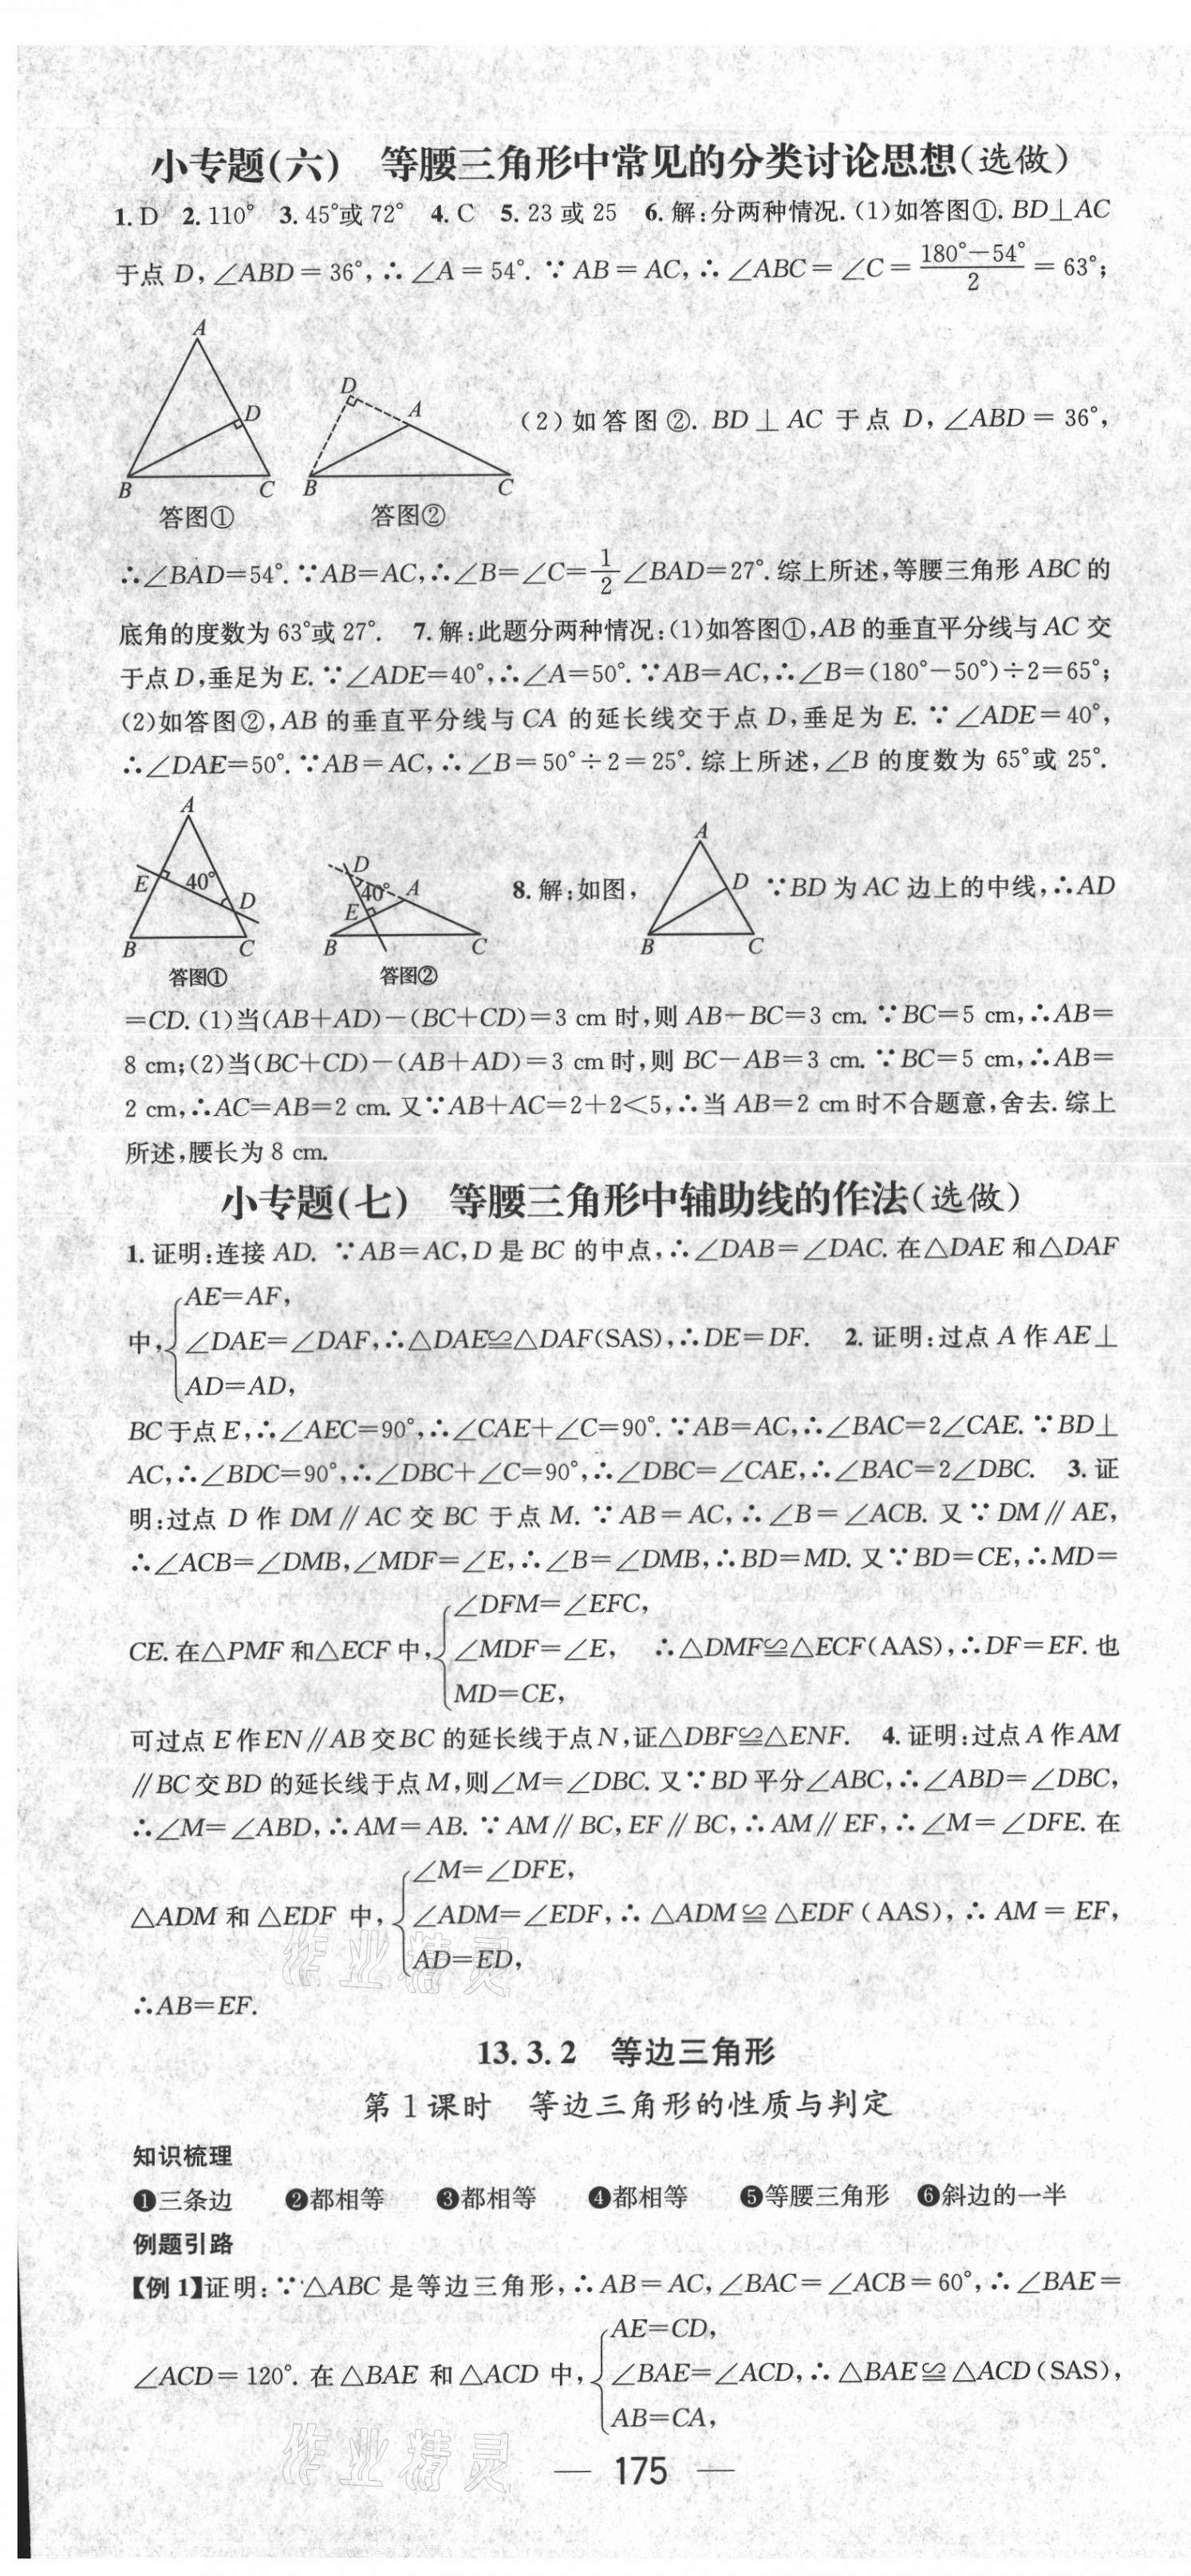 小专题(六)　等腰三角形中常见的分类讨论思想(选做)
1. D　2. 110°　3. 45°或 72°　4. C　5. 23 或 25　6. 解:分两种情况. (1)如答图①. BD⊥AC
于点 D, ∠ABD=36°, ∴∠A=54°. ∵AB=AC, ∴∠ABC=∠C=(180°-54°)/2=63°;
A
D
B
C
答图①
D
A
B
C
答图②
(2)如答图②. BD⊥AC 于点 D, ∠ABD=36°,
∴∠BAD=54°. ∵AB=AC, ∴∠B=∠C=1/2∠BAD=27°. 综上所述, 等腰三角形 ABC 的
底角的度数为 63°或 27°.　7. 解:此题分两种情况:(1)如答图①, AB 的垂直平分线与 AC 交
于点 D, 垂足为 E. ∵∠ADE=40°, ∴∠A=50°. ∵AB=AC, ∴∠B=(180°-50°)÷2=65°;
(2)如答图②, AB 的垂直平分线与 CA 的延长线交于点 D, 垂足为 E. ∵∠ADE=40°,
∴∠DAE=50°. ∵AB=AC, ∴∠B=50°÷2=25°. 综上所述, ∠B 的度数为 65°或 25°.
A
E
40°
D
B
C
答图①
D
40°
A
E
B
C
答图②
8. 解:如图,
A
D
B
C
∵BD 为 AC 边上的中线, ∴AD
=CD. (1)当(AB+AD)-(BC+CD)=3 cm 时, 则 AB-BC=3 cm. ∵BC=5 cm, ∴AB=
8 cm; (2)当(BC+CD)-(AB+AD)=3 cm 时, 则 BC-AB=3 cm. ∵BC=5 cm, ∴AB=
2 cm, ∴AC=AB=2 cm. 又∵AB+AC=2+2<5, ∴当 AB=2 cm 时不合题意, 舍去. 综上
所述, 腰长为 8 cm.
小专题(七)　等腰三角形中辅助线的作法(选做)
1. 证明:连接 AD. ∵AB=AC, D 是 BC 的中点, ∴∠DAB=∠DAC. 在△DAE 和△DAF
AE=AF,
中, ∠DAE=∠DAF, ∴△DAE≌△DAF(SAS), ∴DE=DF.　2. 证明:过点 A 作 AE⊥
AD=AD,
BC 于点 E, ∴∠AEC=90°, ∴∠CAE+∠C=90°. ∵AB=AC, ∴∠BAC=2∠CAE. ∵BD⊥
AC, ∴∠BDC=90°, ∴∠DBC+∠C=90°, ∴∠DBC=∠CAE, ∴∠BAC=2∠DBC.　3. 证
明:过点 D 作 DM∥AC 交 BC 于点 M. ∵AB=AC, ∴∠B=∠ACB. 又∵DM∥AE,
∴∠ACB=∠DMB, ∠MDF=∠E, ∴∠B=∠DMB, ∴BD=MD. 又∵BD=CE, ∴MD=
∠DFM=∠EFC,
CE. 在△PMF 和△ECF 中, ∠MDF=∠E,　∴△DMF≌△ECF(AAS), ∴DF=EF. 也
MD=CE,
可过点 E 作 EN∥AB 交 BC 的延长线于点 N, 证△DBF≌△ENF.　4. 证明:过点 A 作 AM
∥BC 交 BD 的延长线于点 M, 则∠M=∠DBC. 又∵BD 平分∠ABC, ∴∠ABD=∠DBC,
∴∠M=∠ABD, ∴AM=AB. ∵AM∥BC, EF∥BC, ∴AM∥EF, ∴∠M=∠DFE. 在
∠M=∠DFE,
△ADM 和△EDF 中, ∠ADM=∠EDF, ∴△ADM≌△EDF(AAS), ∴AM=EF,
AD=ED,
∴AB=EF.
作业精灵
13.3.2　等边三角形
第 1 课时　等边三角形的性质与判定
知识梳理
❶三条边　❷都相等　❸都相等　❹都相等　❺等腰三角形　❻斜边的一半
例题引路
【例 1】证明:∵△ABC 是等边三角形, ∴AB=AC, ∠BAC=∠ACB=60°, ∴∠BAE=
AE=CD,
∠ACD=120°. 在△BAE 和△ACD 中, ∠BAE=∠ACD, ∴△BAE≌△ACD(SAS),
AB=CA,
作业精灵
— 175 —